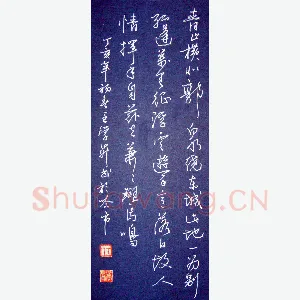 青山横北郭白水绕东城此地一为别
孤蓬万里征浮云游子意落日故人
情挥手自兹去萧萧班马鸣
丁亥年 王学 书于
Shufawang.CN